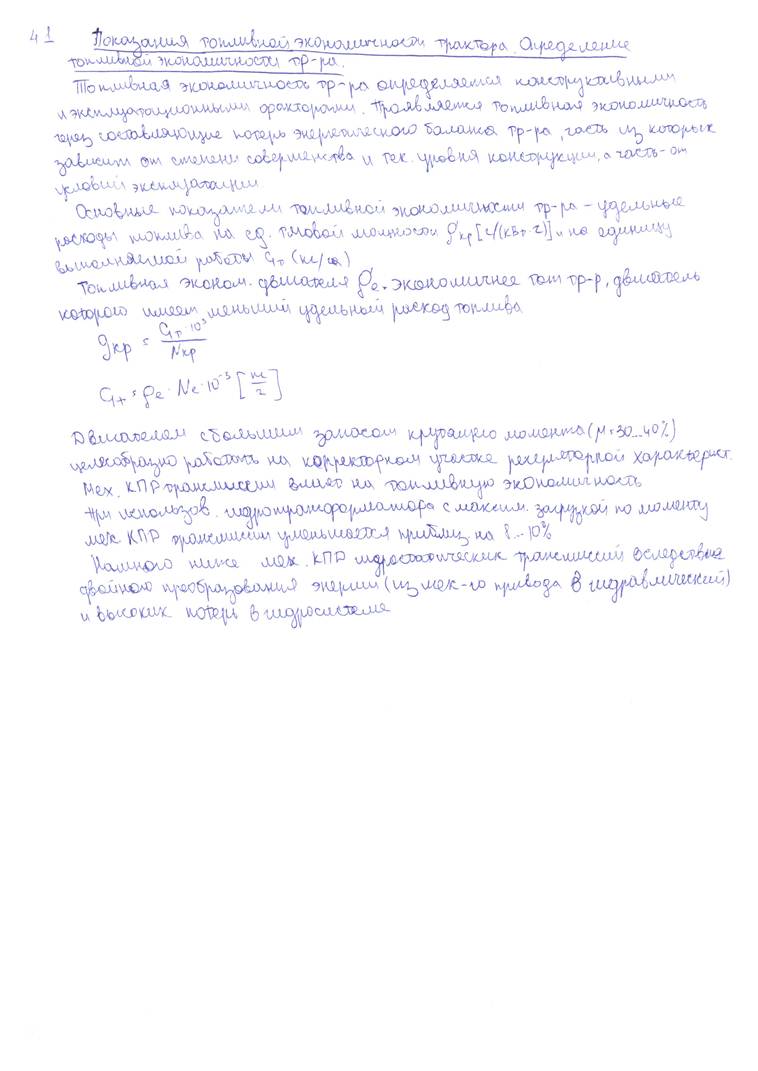 41 Показания топливной экономичности трактора. Определение
топливной экономичности тр-ра.
Топливная экономичность тр-ра определяется конструктивными
и эксплуатационными факторами. Проявляется топливная экономичность
через составляющие потерь энергетического баланса тр-ра, часть из которых
зависит от степени совершенства и тех. уровня конструкции, а часть - от
условий эксплуатации
Основные показатели топливной экономичности тр-ра - удельные
расходы топлива на ед. тяговой мощности gкр [г/(кВт·г)] и на единицу
выполняемой работы Gт (кг/га)
Топливная эконом. двигателя ge. Экономичнее тот тр-р, двигатель
которого имеет меньший удельный расход топлива
gкр = Gт·10³/Nкр
Gт = ge·Ne·10⁻³ [кг/г]
Двигателем с большим запасом крутящего момента (μ=30...40%)
целесобразно работать на корректорном участке регуляторной характерист.
Мех. КПД трансмиссии влияет на топливную экономичность
При использов. гидротрансформатора с максим. загрузкой по моменту
мех. КПД трансмиссии уменьшается приблиз. на 8...10%
Намного ниже мех. КПД гидростатических трансмиссий вследствие
двойного преобразования энергии (из мех-го привода в гидравлический)
и высоких потерь в гидросистеме